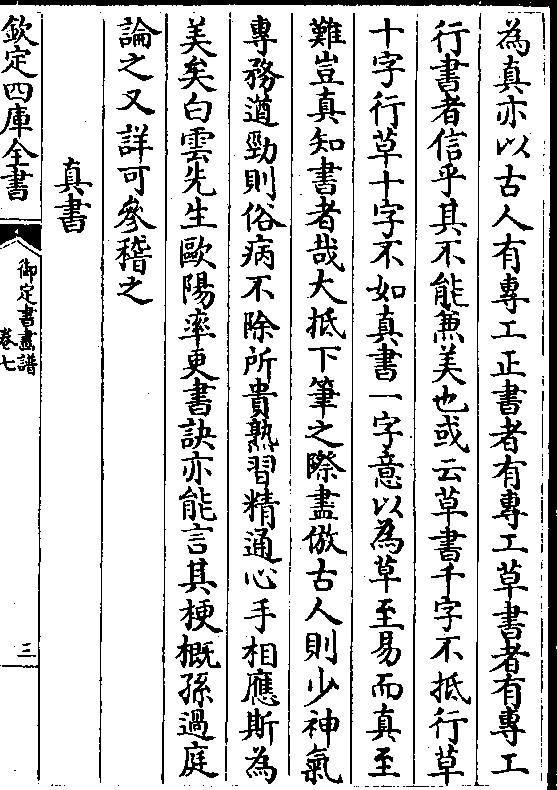 為真亦以古人有專工正書者有專工草書者有專工
行書者信乎其不能兼美也或云草書千字不抵行草
十字行草十字不如真書一字意以為草至易而真至
難豈真知書者哉大抵下筆之際盡倣古人則少神氣
專務遒勁則俗病不除所貴熟習精通心手相應斯為
美矣白雲先生歐陽率更書訣亦能言其梗概孫過庭
論之又詳可參稽之
真書
欽定四庫全書
御定書畫譜
卷七
三